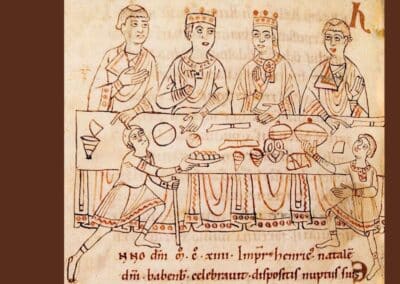 NNO dñi M̊ C̊ xiiii· Imp̄r henric̄ natale
dñi· babenb̄· celebrauit· dispositis nuptiis suis